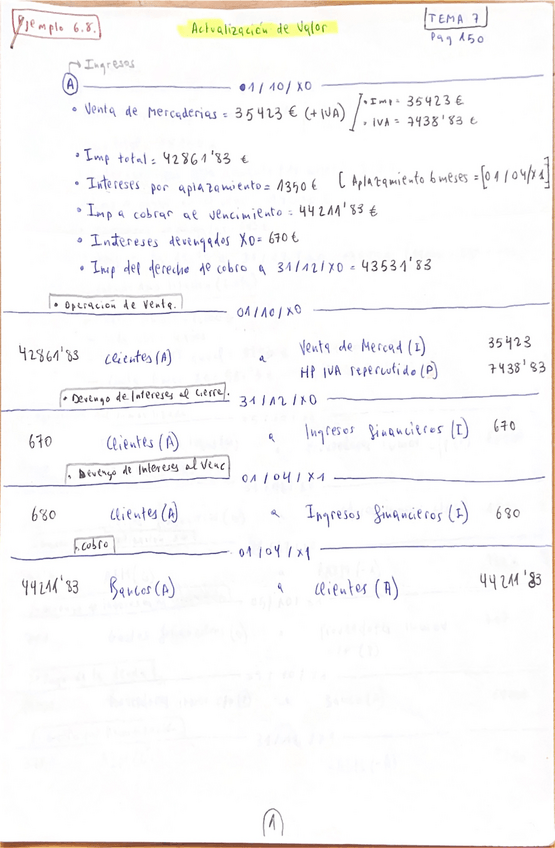 Ejemplo 6.8.
Actualización de Valor
TEMA 7
Pag 150
Ingresos
A
01/10/X0
• Venta de Mercaderias = 35423 € (+IVA)
• Imp = 35423 €
• IVA = 7438'83 €
• Imp total = 42861'83 €
• Intereses por aplazamiento = 1350 € [Aplazamiento 6 meses = [01/04/X1]
• Imp a cobrar al vencimiento = 44211'83 €
• Intereses devengados X0 = 670 €
• Imp del derecho de cobro a 31/12/X0 = 43531'83
• Operación de Venta.
01/10/X0
42861'83 Clientes (A) a Venta de Mercad (I) 35423
HP IVA repercutido (P) 7438'83
• Devengo de Intereses al cierre.
31/12/X0
670 Clientes (A) a Ingresos financieros (I) 670
• Devengo de Intereses al Venc
01/04/X1
680 Clientes (A) a Ingresos financieros (I) 680
• Cobro
01/04/X1
44211'83 Bancos (A) a Clientes (A) 44211'83
1